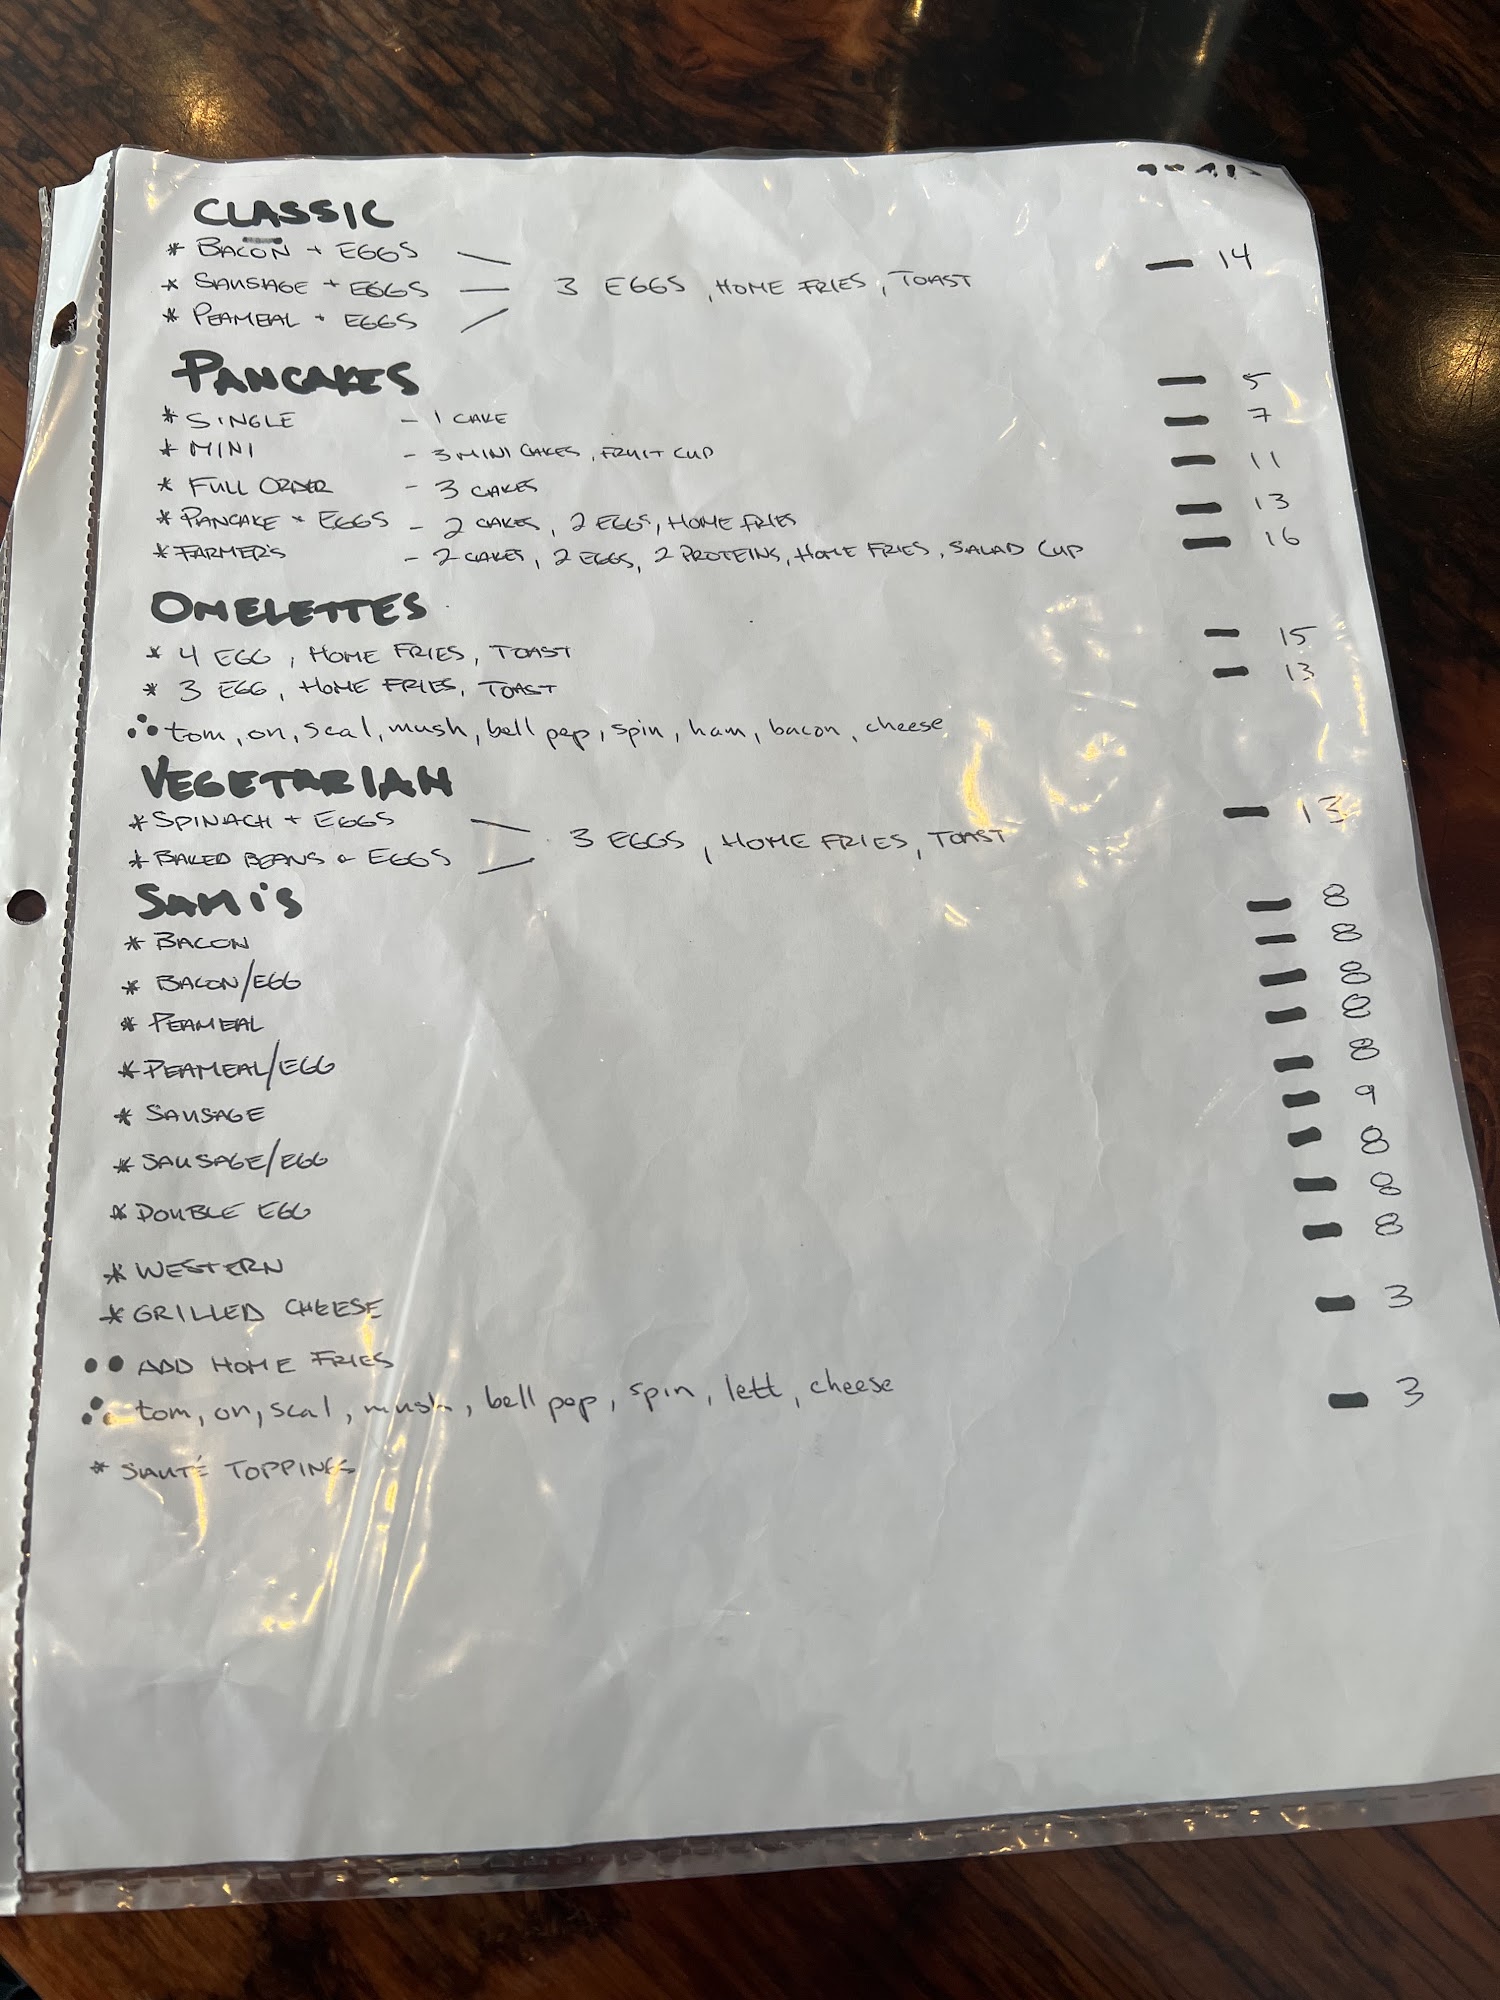 CLASSIC
* BACON + EGGS
* SAUSAGE + EGGS — 3 EGGS, HOME FRIES, TOAST — 14
* PEAMEAL + EGGS
PANCAKES
* SINGLE - 1 CAKE — 5
* MINI - 3 MINI CAKES, FRUIT CUP — 7
* FULL ORDER - 3 CAKES — 11
* PANCAKE + EGGS - 2 CAKES, 2 EGGS, HOME FRIES — 13
* FARMER'S - 2 CAKES, 2 EGGS, 2 PROTEINS, HOME FRIES, SALAD CUP — 16
OMELETTES
* 4 EGG, HOME FRIES, TOAST — 15
* 3 EGG, HOME FRIES, TOAST — 13
tom, on, scal, mush, bell pep, spin, ham, bacon, cheese
VEGETARIAN
* SPINACH + EGGS
* BAKED BEANS & EGGS — 3 EGGS, HOME FRIES, TOAST — 13
SAMI'S
* BACON — 8
* BACON/EGG — 8
* PEAMEAL — 8
* PEAMEAL/EGG — 8
* SAUSAGE — 8
* SAUSAGE/EGG — 9
* DOUBLE EGG — 8
* WESTERN — 8
* GRILLED CHEESE — 8
•• ADD HOME FRIES — 3
tom, on, scal, mush, bell pep, spin, lett, cheese
* SAUTÉ TOPPINGS — 3